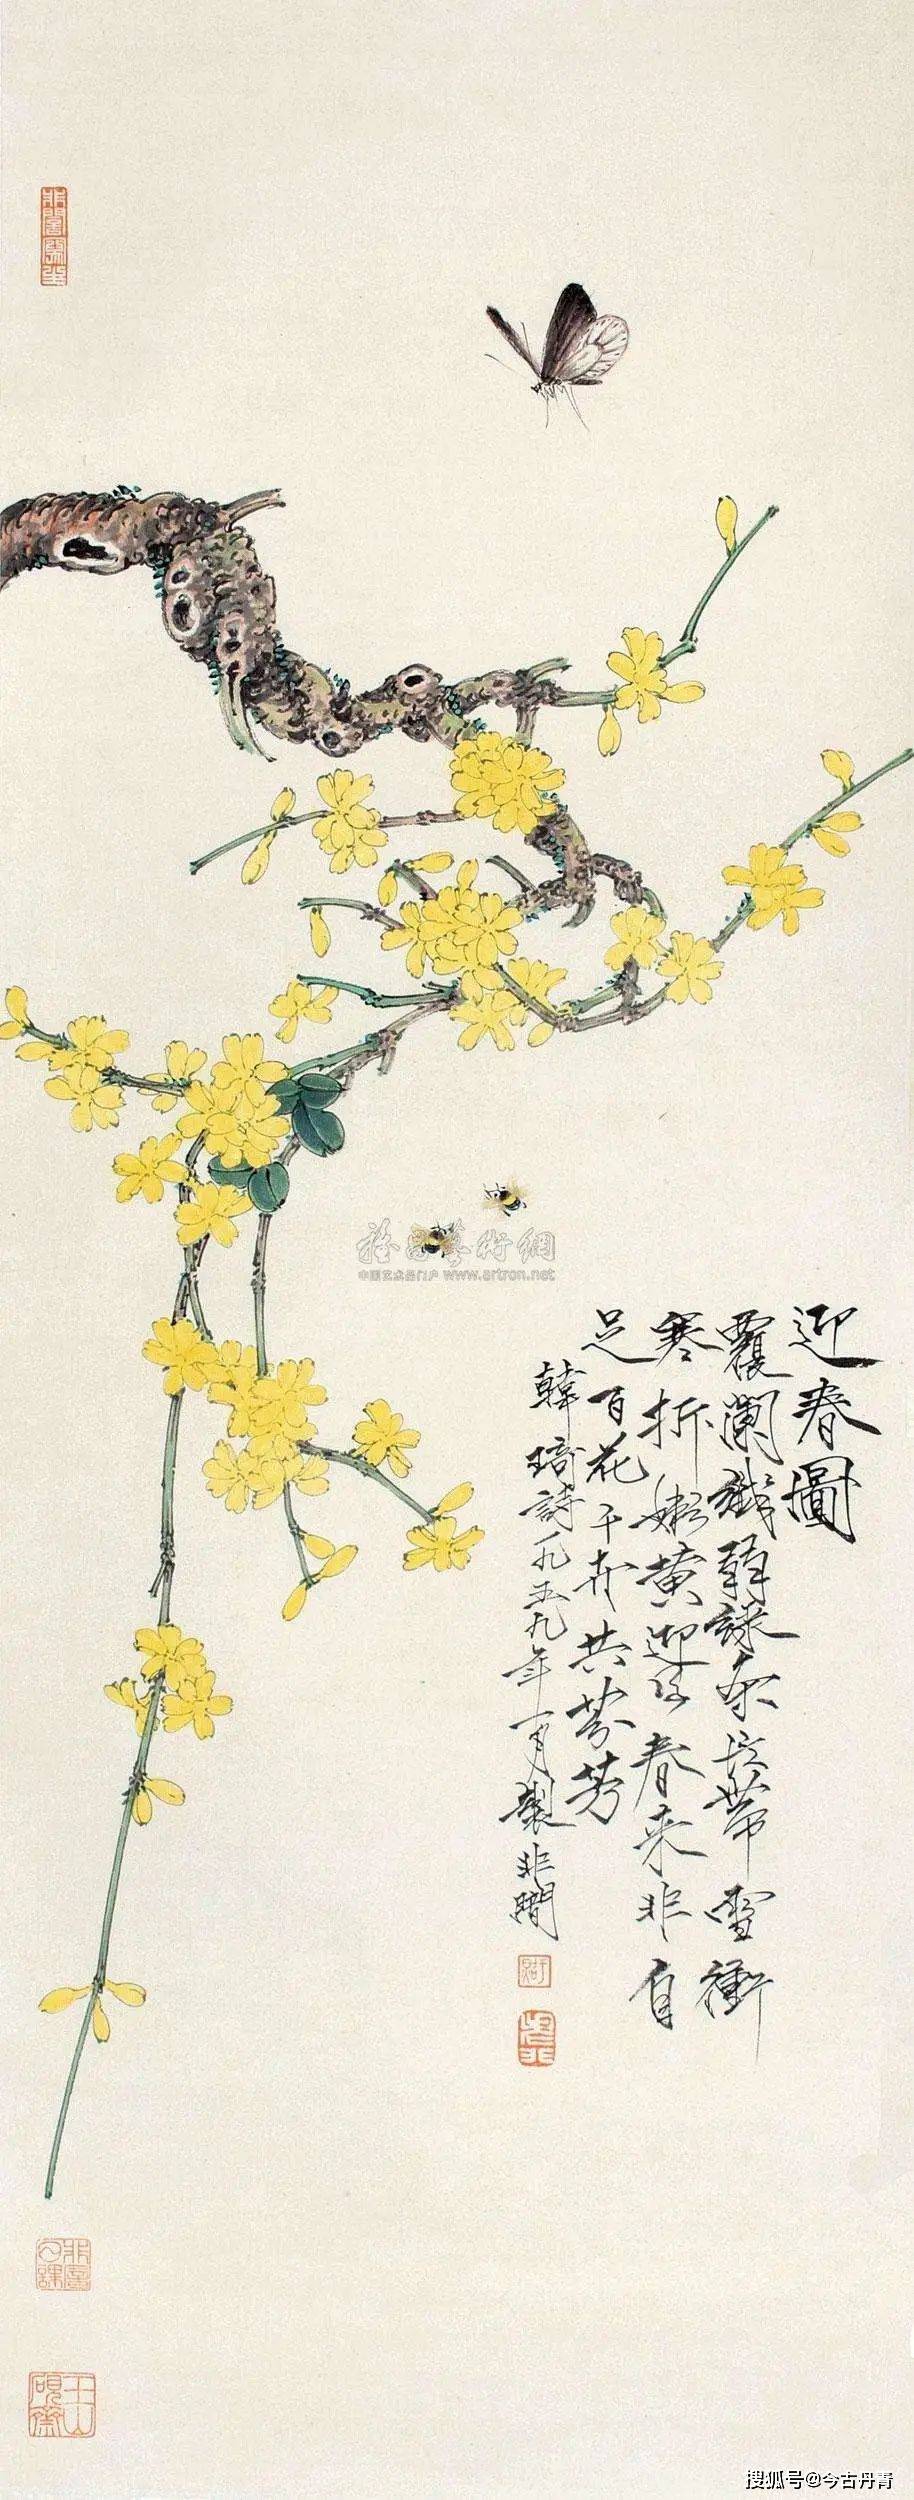 迎春圖
覆闌纖弱綠条長帶雪衝
寒折嫩黄迎得春来非自
足百花千卉共芬芳
韓琦詩一九五九年一月製非闇
玉山硯齋
雅昌藝術網
中国艺术品门户 www.artron.net
搜狐号@今古丹青